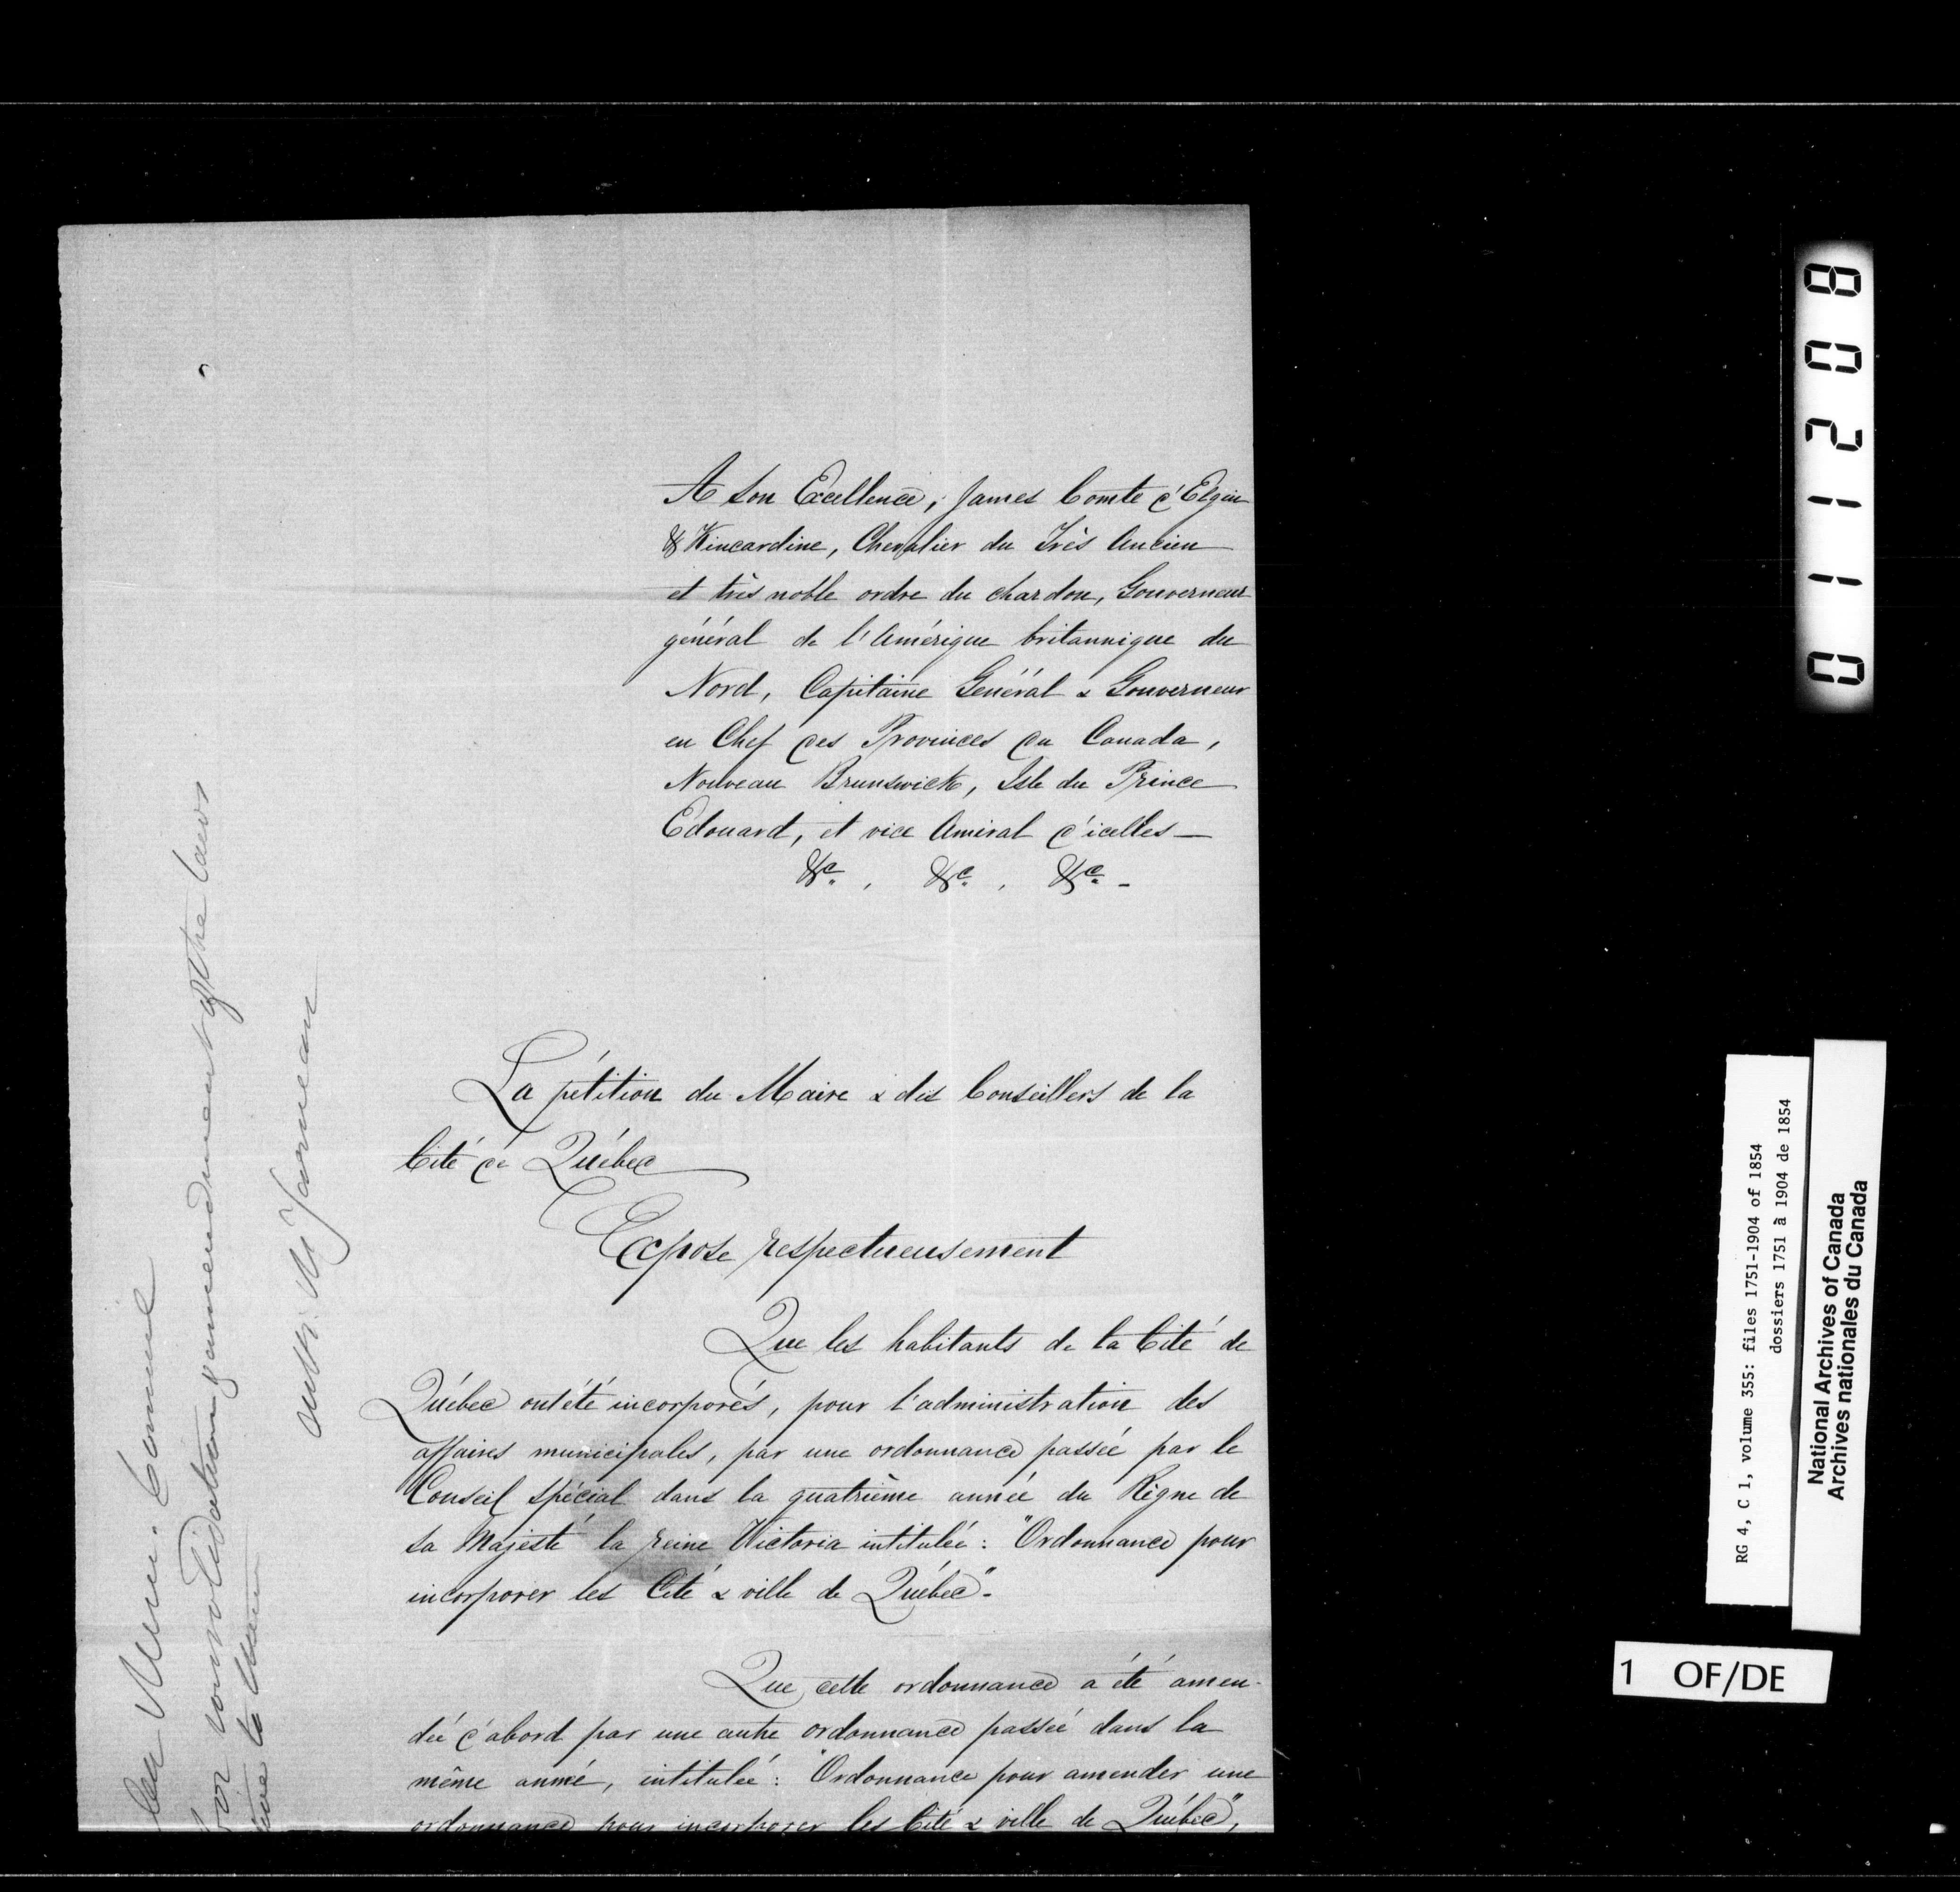 A Son Excellence, James Comte d'Elgin
& Kincardine, Chevalier du Très Ancien
et très noble ordre du chardon, Gouverneur
général de l'Amérique britannique du
Nord, Capitaine Général & Gouverneur
en Chef des Provinces du Canada,
Nouveau Brunswick, Isle du Prince
Edouard, et vice Amiral d'icelles —
&c. , &c. , &c. -
La pétition du Maire & des Conseillers de la
Cité de Québec
Expose respectueusement
Que les habitants de la Cité de
Québec ont été incorporés, pour l'administration des
affaires municipales, par une ordonnance passée par le
Conseil Spécial dans la quatrième année du Règne de
Sa Majesté la reine Victoria intitulée : "Ordonnance pour
incorporer les Cité & ville de Québec".
Que cette ordonnance a été amen-
dée d'abord par une autre ordonnance passée dans la
même année, intitulée : "Ordonnance pour amender une
ordonnance pour incorporer les Cité & ville de Québec",
Mun. Council
consolidation & amendment of the laws
M Garneau
011208
RG 4, C 1, volume 355: files 1751-1904 of 1854
dossiers 1751 à 1904 de 1854
National Archives of Canada
Archives nationales du Canada
1 OF/DE